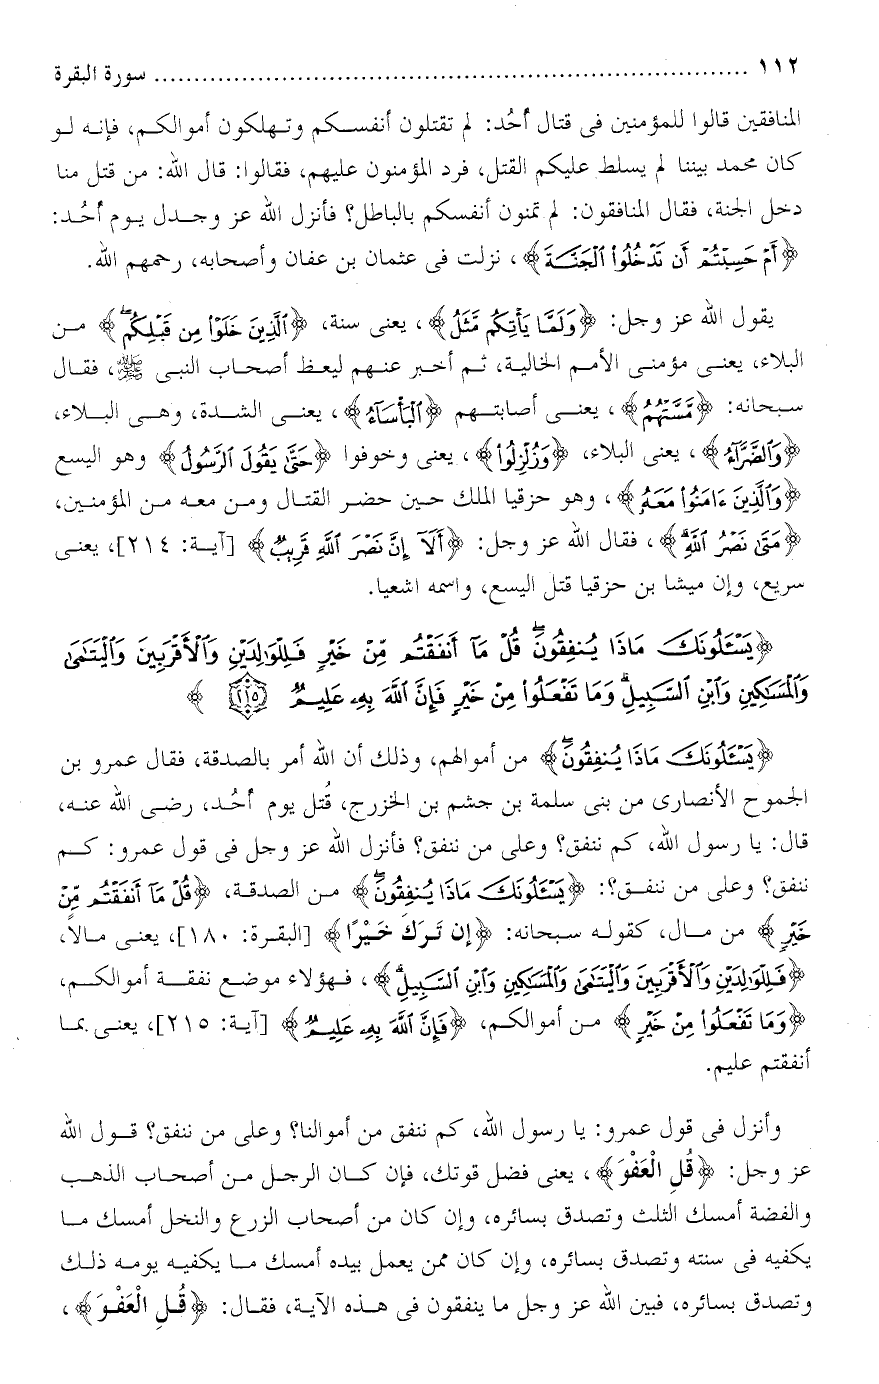 ١١٢ ........................................................................ سورة البقرة
المنافقين قالوا للمؤمنين فى قتال أُحُد: لم تقتلون أنفسكم وتهلكون أموالكم، فإنه لو
كان محمد بيننا لم يسلط عليكم القتل، فرد المؤمنون عليهم، فقالوا: قال الله: من قتل منا
دخل الجنة، فقال المنافقون: لم تمنون أنفسكم بالباطل؟ فأنزل الله عز وجدل يوم أُحُد:
﴿أَمْ حَسِبْتُمْ أَن تَدْخُلُوا۟ ٱلْجَنَّةَ﴾، نزلت فى عثمان بن عفان وأصحابه، رحمهم الله.
يقول الله عز وجل: ﴿وَلَمَّا يَأْتِكُم مَّثَلُ﴾، يعنى سنة، ﴿ٱلَّذِينَ خَلَوْا۟ مِن قَبْلِكُم ۖ﴾ من
البلاء، يعنى مؤمنى الأمم الخالية، ثم أخبر عنهم ليعظ أصحاب النبى ﷺ، فقال
سبحانه: ﴿مَّسَّتْهُمُ﴾، يعنى أصابتهم ﴿ٱلْبَأْسَآءُ﴾، يعنى الشدة، وهى البلاء،
﴿وَٱلضَّرَّآءُ﴾، يعنى البلاء، ﴿وَزُلْزِلُوا۟﴾، يعنى وخوفوا ﴿حَتَّىٰ يَقُولَ ٱلرَّسُولُ﴾ وهو اليسع
﴿وَٱلَّذِينَ ءَامَنُوا۟ مَعَهُۥ﴾، وهو حزقيا الملك حين حضر القتال ومن معه من المؤمنين،
﴿مَتَىٰ نَصْرُ ٱللَّهِ ۗ﴾، فقال الله عز وجل: ﴿أَلَآ إِنَّ نَصْرَ ٱللَّهِ قَرِيبٌ﴾ [آية: ٢١٤]، يعنى
سريع، وإن ميشا بن حزقيا قتل اليسع، واسمه اشعيا.
﴿يَسْـَٔلُونَكَ مَاذَا يُنفِقُونَ ۖ قُلْ مَآ أَنفَقْتُم مِّنْ خَيْرٍ فَلِلْوَٰلِدَيْنِ وَٱلْأَقْرَبِينَ وَٱلْيَتَـٰمَىٰ
وَٱلْمَسَـٰكِينِ وَٱبْنِ ٱلسَّبِيلِ ۗ وَمَا تَفْعَلُوا۟ مِنْ خَيْرٍ فَإِنَّ ٱللَّهَ بِهِۦ عَلِيمٌ ٢١٥﴾
﴿يَسْـَٔلُونَكَ مَاذَا يُنفِقُونَ ۖ﴾ من أموالهم، وذلك أن الله أمر بالصدقة، فقال عمرو بن
الجموح الأنصارى من بنى سلمة بن جشم بن الخزرج، قُتل يوم أُحُد، رضى الله عنه،
قال: يا رسول الله، كم ننفق؟ وعلى من ننفق؟ فأنزل الله عز وجل فى قول عمرو: كم
ننفق؟ وعلى من ننفق؟: ﴿يَسْـَٔلُونَكَ مَاذَا يُنفِقُونَ ۖ﴾ من الصدقة، ﴿قُلْ مَآ أَنفَقْتُم مِّنْ
خَيْرٍ﴾ من مال، كقوله سبحانه: ﴿إِن تَرَكَ خَيْرًا﴾ [البقرة: ١٨٠]، يعنى مالاً،
﴿فَلِلْوَٰلِدَيْنِ وَٱلْأَقْرَبِينَ وَٱلْيَتَـٰمَىٰ وَٱلْمَسَـٰكِينِ وَٱبْنِ ٱلسَّبِيلِ ۗ﴾، فهؤلاء موضع نفقة أموالكم،
﴿وَمَا تَفْعَلُوا۟ مِنْ خَيْرٍ﴾ من أموالكم، ﴿فَإِنَّ ٱللَّهَ بِهِۦ عَلِيمٌ﴾ [آية: ٢١٥]، يعنى بما
أنفقتم عليم.
وأنزل فى قول عمرو: يا رسول الله، كم ننفق من أموالنا؟ وعلى من ننفق؟ قول الله
عز وجل: ﴿قُلِ الْعَفْوَ﴾، يعنى فضل قوتك، فإن كان الرجل من أصحاب الذهب
والفضة أمسك الثلث وتصدق بسائره، وإن كان من أصحاب الزرع والنخل أمسك ما
يكفيه فى سنته وتصدق بسائره، وإن كان ممن يعمل بيده أمسك ما يكفيه يومه ذلك
وتصدق بسائره، فبين الله عز وجل ما ينفقون فى هذه الآية، فقال: ﴿قُلِ الْعَفْوَ﴾،